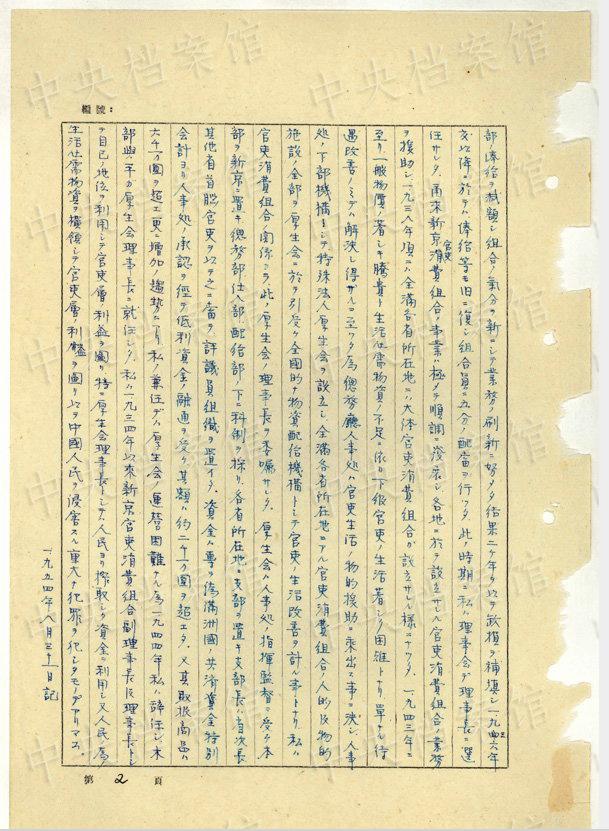 編號：
部ノ俸給ヲ減額シ組合ノ氣分ヲ新ニシテ業務ノ刷新ニ努メタ結果二ケ年ヲ以テ政損ヲ補填シ一九三六年
以降ニ於テハ俸給等モ旧ニ復シ組合員ニ五分ノ配當ヲ行ツタ。此ノ時期ニ私ハ理事会デ理事長ニ選
任サレタ。爾来新京官吏消費組合ノ事業ハ極メテ順調ニ発展シ各地ニ於テ設立サレタ官吏消費組合ノ業務
ヲ援助シ一九三八年頃ニハ全滿各省所在地ニハ大体官吏消費組合ガ設立サレル様ニナツタ。一九四三年ニ
至リ一般物價ノ著シキ騰貴ト生活必需物資ノ不足ニ依リ下級官吏ノ生活著シク困難トナリ單ナル待
遇改善ノミデハ解決シ得ザルニ至ツタ為總務廳人事処ハ官吏生活ノ物的援助ニ乘出ス事ニ決シ人事
処ノ下部機構トシテ特殊法人厚生会ヲ設立シ全滿各省所在地ニアル官吏消費組合ノ人的及物的
施設ノ全部ヲ厚生会ニ於テ引受ケ全國的ナ物資配給機構トシテ官吏ノ生活改善ヲ計ル事トナリ私ハ
官吏消費組合関係カラ此ノ厚生会ノ理事長ヲ委嘱サレタ。厚生会ハ人事処ノ指揮監督ヲ受ケ本
部ヲ新京ニ置キ總務部仕入部配給部ノ下ニ科制ヲ採リ各省所在地ニ支部ヲ置キ支部長ハ省次長
其他省首脳官吏ヲ以テ之ニ當テ評議員組織ヲ置イタ。資金ハ專ラ偽滿洲國共済資金特別
会計ヨリ人事処ノ承認ヲ經テ低利資金ノ融通ヲ受ケ其額ハ約二千万圓ヲ超エタ。又其取扱商品ハ
六千万圓ヲ超エ更ニ増加ノ趨勢ニアリ私ノ兼任デハ厚生会ノ運営困難ナル為一九四四年私ハ辞任シ木
部與一平ガ厚生会理事長ニ就任シタ。私ハ一九三四年以来新京官吏消費組合副理事長及理事長トシ
テ自己ノ地位ヲ利用シテ官吏層ノ利益ヲ圖リ特ニ厚生会理事長トシテハ人民ヨリ搾取シタ資金ヲ利用シ又人民ノ為ノ
生活必需物資ヲ横領シテ官吏層ノ利益ヲ圖リ以テ中國人民ヲ侵害スル重大ナ犯罪ヲ犯シタモノデアリマス。
一九五四年八月三十一日記
第 2 頁
中央档案馆